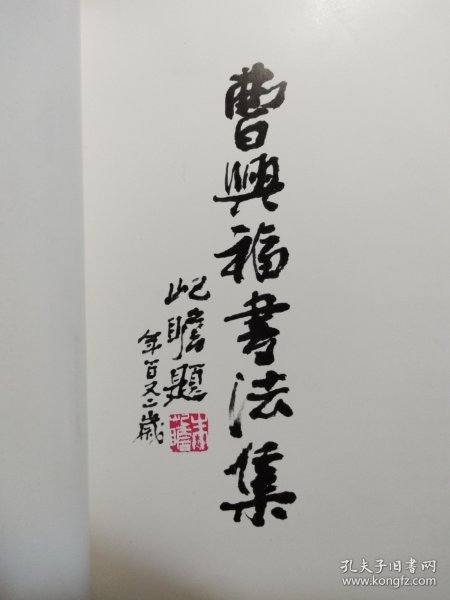 曹興福書法集
屺瞻題
年百又二歲
朱屺瞻
孔夫子旧书网
www.kongfz.com